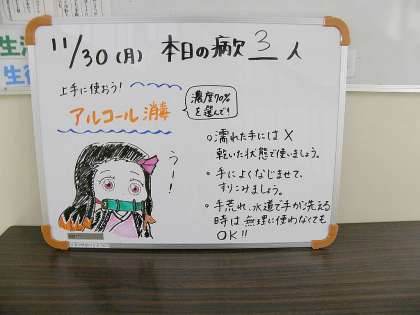 11/30(月) 本日の病欠 3 人
上手に使おう!
アルコール消毒
濃度70%
を選んで!
うー!
○濡れた手には×
乾いた状態で使いましょう。
・手によくなじませて、
すりこみましょう。
・手荒れ、水道で手が洗える
時は無理に使わなくても
OK!!